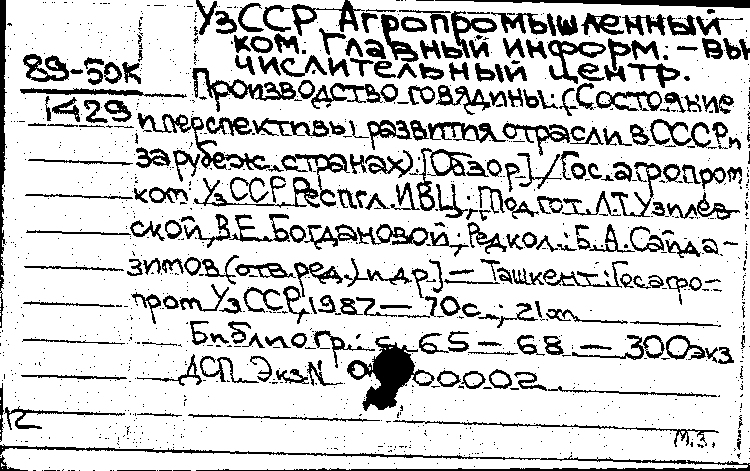 УзССР. Агропромышленный
ком. Главный информ.-вы
числительный центр.
89-50К
1429
Производство говядины: (Состояние
и перспективы развития отрасли в СССР и
за рубеж. странах). [Обзор] / Гос. агропром
ком. УзССР. Респ. гл. ИВЦ; [Подгот. Л.Т. Узилев
ской, В.Е. Богдановой; Редкол.: Б. А. Сайда-
зимов (отв. ред.) и др.] — Ташкент: Госагро-
пром УзССР, 1987 — 70 с.; 21 см
Библиогр.: с. 65 - 68. — 300 экз
ДСП. Экз N 0 00002
12
М.З.